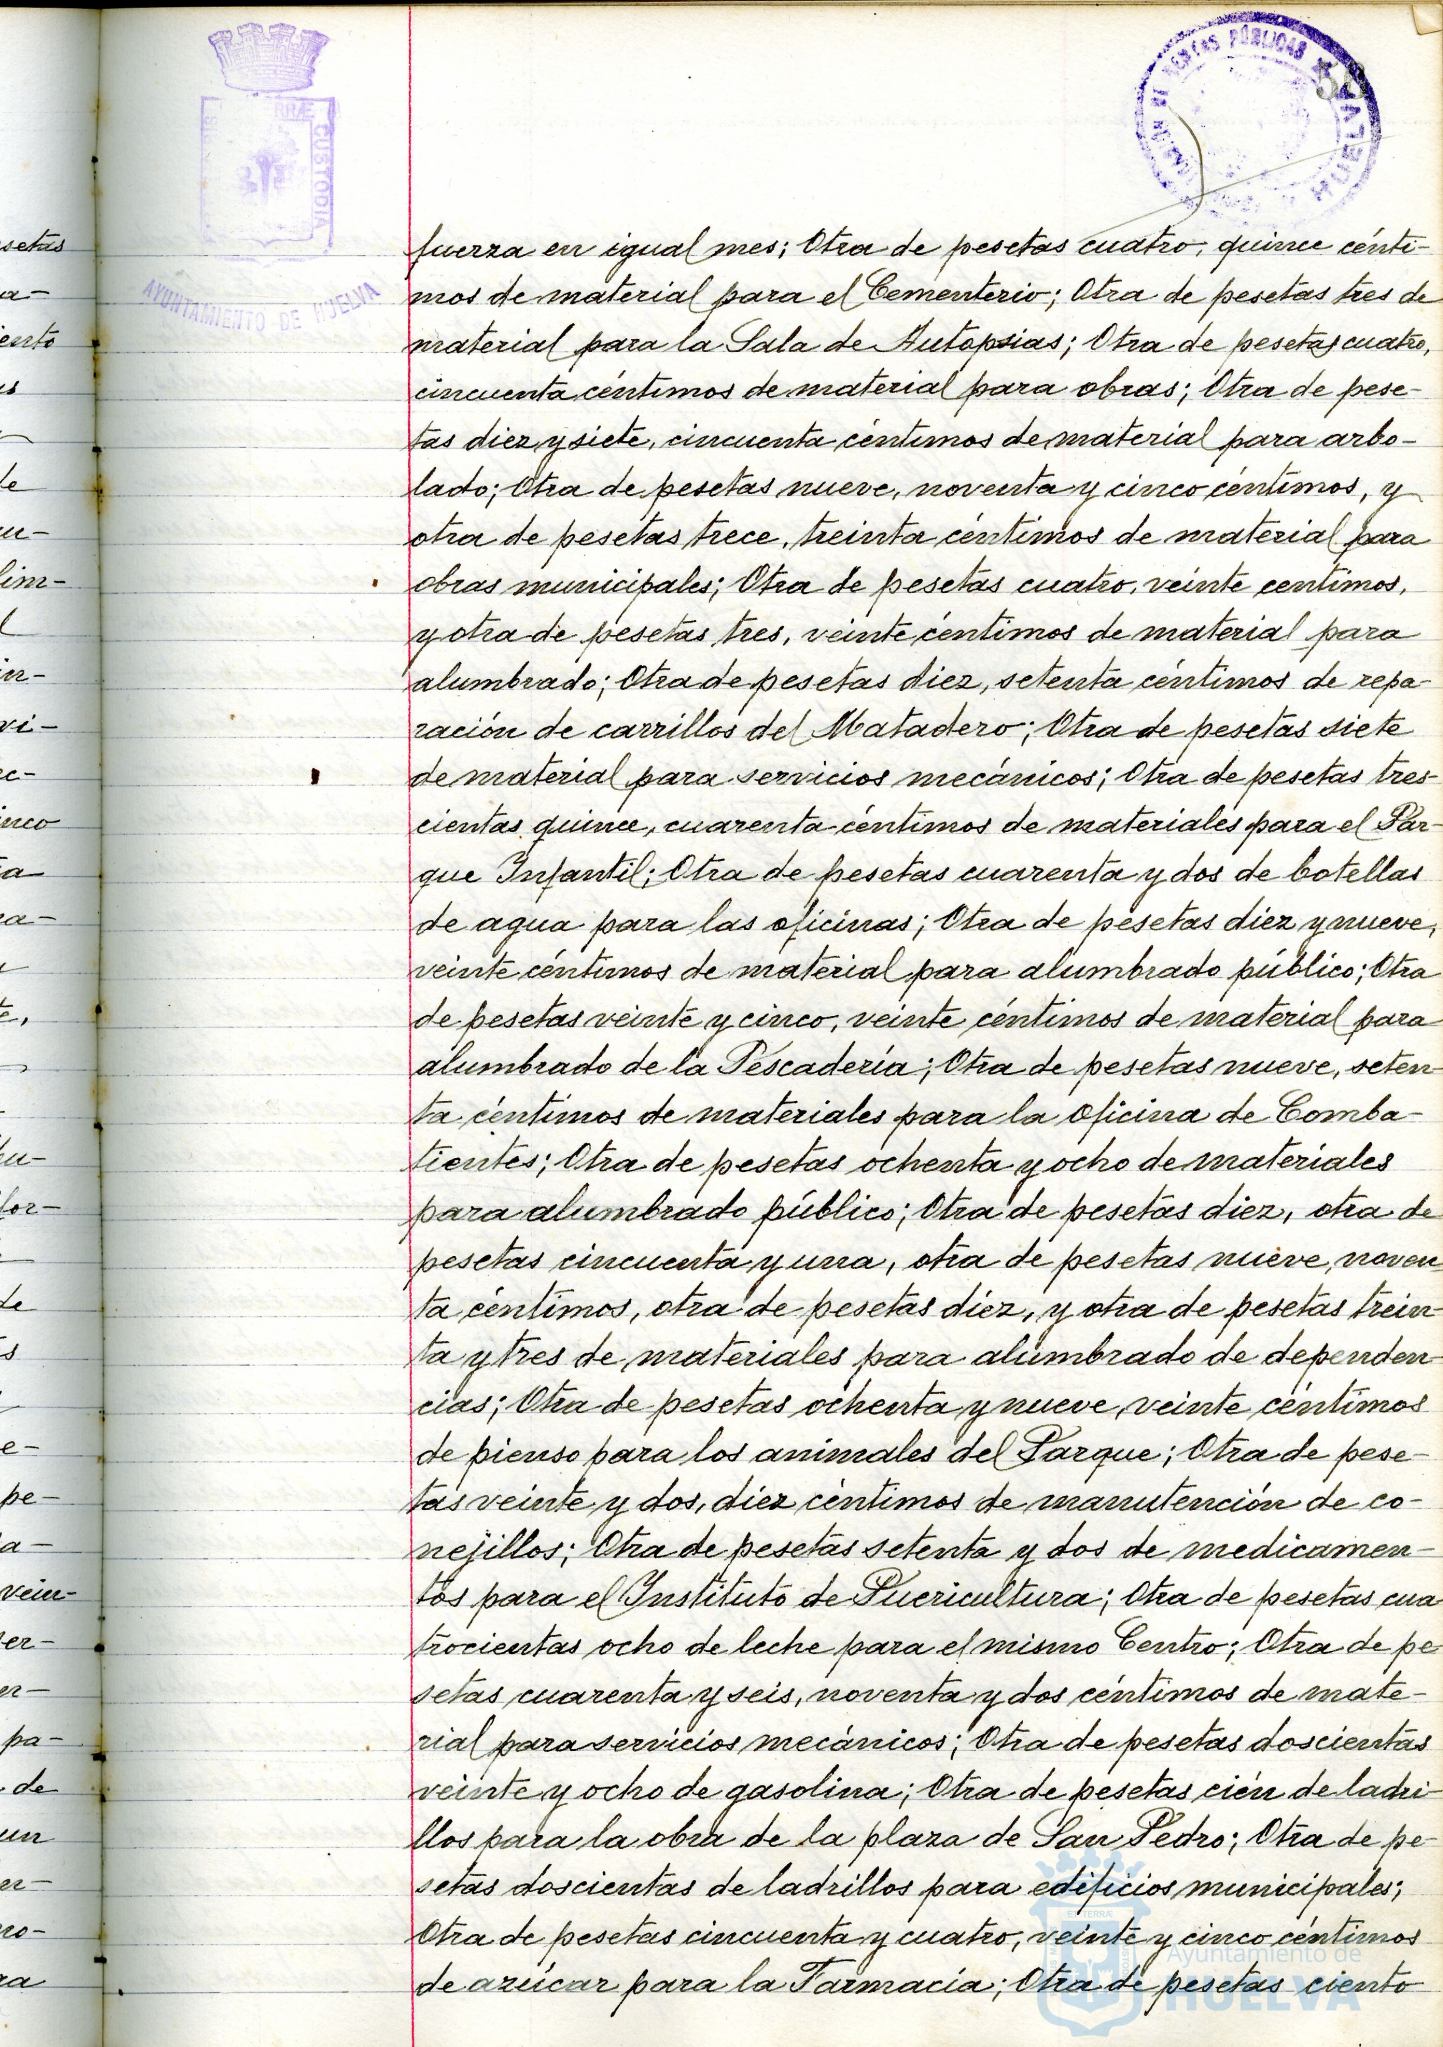 58
fuerza en igual mes; Otra de pesetas cuatro, quince cénti-
mos de material para el Cementerio; Otra de pesetas tres de
material para la Sala de Autopsias; Otra de pesetas cuatro,
cincuenta céntimos de material para obras; Otra de pese-
tas diez y siete, cincuenta céntimos de material para arbo-
lado; Otra de pesetas nueve, noventa y cinco céntimos, y
otra de pesetas trece, treinta céntimos de material para
obras municipales; Otra de pesetas cuatro, veinte centimos,
y otra de pesetas tres, veinte céntimos de material para
alumbrado; Otra de pesetas diez, setenta céntimos de repa-
ración de carrillos del Matadero; Otra de pesetas siete
de material para servicios mecánicos; Otra de pesetas tres-
cientas quince, cuarenta céntimos de materiales para el Par-
que Infantil; Otra de pesetas cuarenta y dos de botellas
de agua para las oficinas; Otra de pesetas diez y nueve,
veinte céntimos de material para alumbrado público; Otra
de pesetas veinte y cinco, veinte céntimos de material para
alumbrado de la Pescadería; Otra de pesetas nueve, seten-
ta céntimos de materiales para la oficina de Comba-
tientes; Otra de pesetas ochenta y ocho de materiales
para alumbrado público; Otra de pesetas diez, otra de
pesetas cincuenta y una, otra de pesetas nueve, noven-
ta céntimos, otra de pesetas diez, y otra de pesetas trein-
ta y tres de materiales para alumbrado de dependen-
cias; Otra de pesetas ochenta y nueve, veinte céntimos
de pienso para los animales del Parque; Otra de pese-
tas veinte y dos, diez céntimos de manutención de co-
nejillos; Otra de pesetas setenta y dos de medicamen-
tos para el Instituto de Puericultura; Otra de pesetas cua
trocientas ocho de leche para el mismo Centro; Otra de pe
setas cuarenta y seis, noventa y dos céntimos de mate-
rial para servicios mecánicos; Otra de pesetas doscientas
veinte y ocho de gasolina; Otra de pesetas cién de ladri-
llos para la obra de la plaza de San Pedro; Otra de pe-
setas doscientas de ladrillos para edificios municipales;
Otra de pesetas cincuenta y cuatro, veinte y cinco céntimos
de azúcar para la Farmacia; Otra de pesetas ciento
CUSTODIA
AYUNTAMIENTO DE HUELVA
PÚBLICAS
HUELVA
Ayuntamiento de
HUELVA